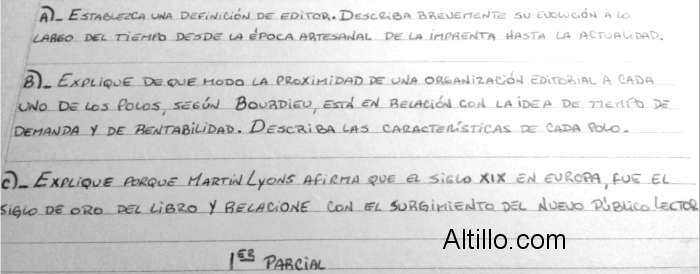 A)_ ESTABLEZCA UNA DEFINICIÓN DE EDITOR. DESCRIBA BREVEMENTE SU EVOLUCIÓN A LO
LARGO DEL TIEMPO DESDE LA ÉPOCA ARTESANAL DE LA IMPRENTA HASTA LA ACTUALIDAD.
B)_ EXPLIQUE DE QUE MODO LA PROXIMIDAD DE UNA ORGANIZACIÓN EDITORIAL A CADA
UNO DE LOS POLOS, SEGÚN BOURDIEU, ESTÁ EN RELACIÓN CON LA IDEA DE TIEMPO DE
DEMANDA Y DE RENTABILIDAD. DESCRIBA LAS CARACTERÍSTICAS DE CADA POLO.
C)_ EXPLIQUE PORQUE MARTIN LYONS AFIRMA QUE EL SIGLO XIX EN EUROPA, FUE EL
SIGLO DE ORO DEL LIBRO Y RELACIONE CON EL SURGIMIENTO DEL NUEVO PÚBLICO LECTOR
Altillo.com
1ER PARCIAL